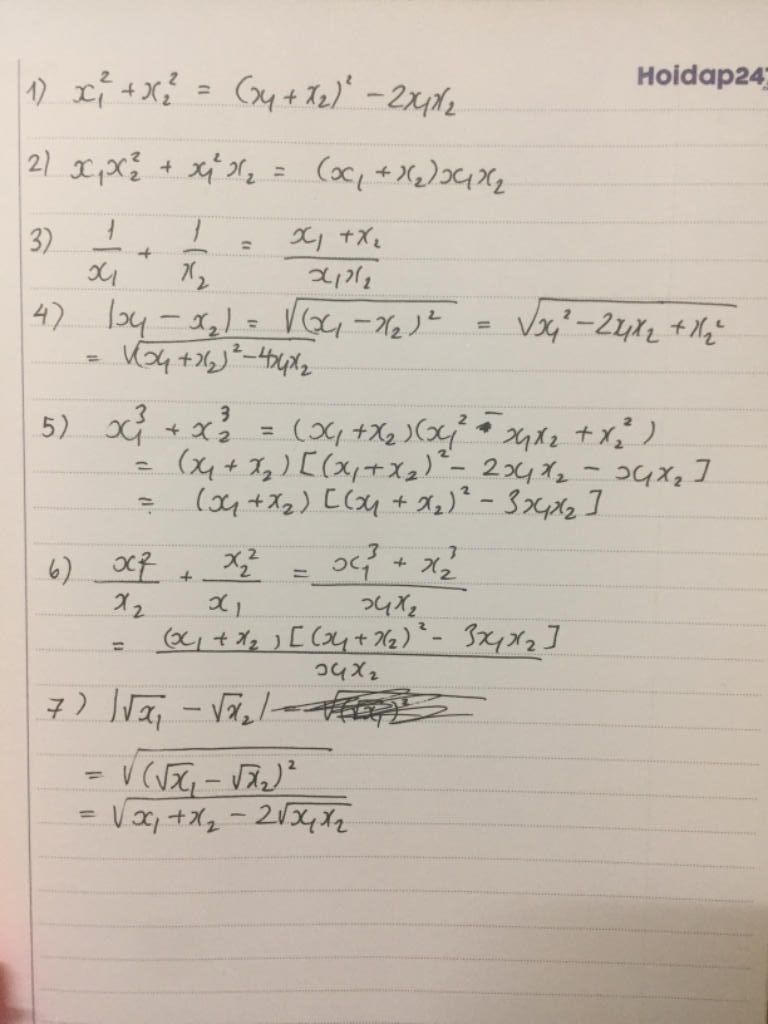 Hoidap247
1) x₁² + x₂² = (x₁ + x₂)² - 2x₁x₂
2) x₁x₂² + x₁²x₂ = (x₁ + x₂)x₁x₂
3) 1/x₁ + 1/x₂ = (x₁ + x₂)/(x₁x₂)
4) |x₁ - x₂| = √((x₁ - x₂)²) = √(x₁² - 2x₁x₂ + x₂²)
= √((x₁ + x₂)² - 4x₁x₂)
5) x₁³ + x₂³ = (x₁ + x₂)(x₁² - x₁x₂ + x₂²)
= (x₁ + x₂)[(x₁ + x₂)² - 2x₁x₂ - x₁x₂]
= (x₁ + x₂)[(x₁ + x₂)² - 3x₁x₂]
6) x₁²/x₂ + x₂²/x₁ = (x₁³ + x₂³)/(x₁x₂)
= (x₁ + x₂)[(x₁ + x₂)² - 3x₁x₂]/(x₁x₂)
7) |√x₁ - √x₂|
= √((√x₁ - √x₂)²)
= √(x₁ + x₂ - 2√(x₁x₂))